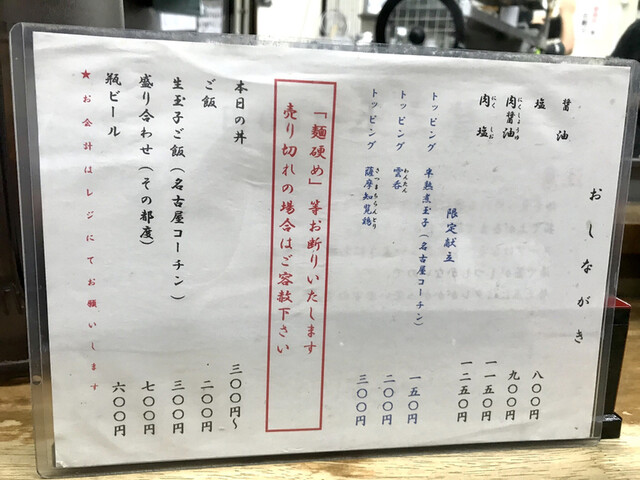 おしながき
醤油 八〇〇円
塩 九〇〇円
肉醤油 一一五〇円
肉塩 一二五〇円
限定献立
トッピング 半熟煮玉子(名古屋コーチン) 一五〇円
トッピング 雲呑 二〇〇円
トッピング 薩摩知覧鶏 三〇〇円
「麺硬め」等お断りいたします
売り切れの場合はご容赦下さい
本日の丼 三〇〇円~
ご飯 二〇〇円
生玉子ご飯(名古屋コーチン) 三〇〇円
盛り合わせ(その都度) 七〇〇円
瓶ビール 六〇〇円
★お会計はレジにてお願いします